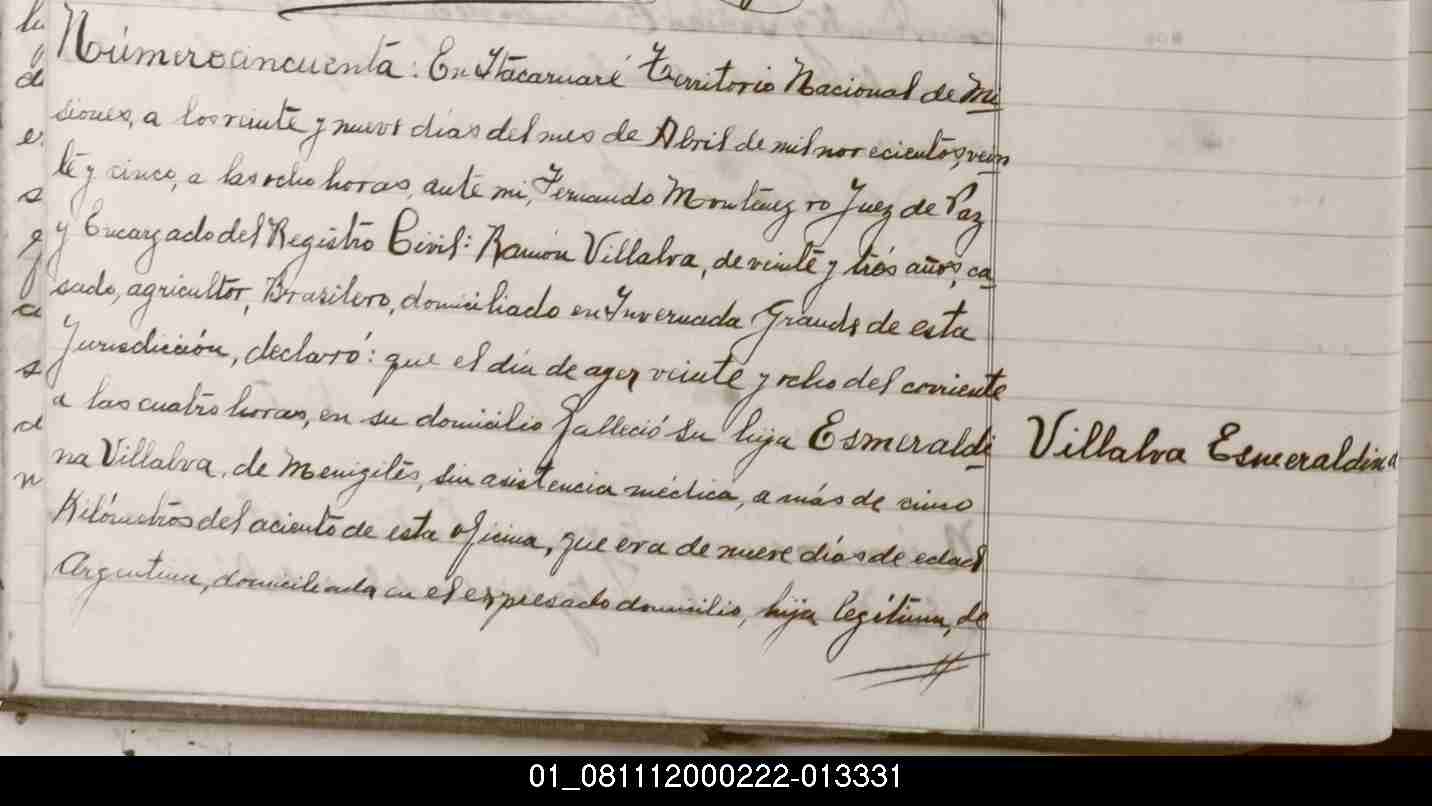 Número cincuenta: En Itacaruaré Territorio Nacional de Mi
siones, a los veinte y nueve días del mes de Abril de mil novecientos, vein
te y cinco, a las ocho horas, ante mi, Fernando Montenegro Juez de Paz
y Encargado del Registro Civil: Ramón Villalva, de veinte y trés años, ca
sado, agricultor, Brasilero, domiciliado en Invernada Grande de esta
Jurisdicción, declaró: que el día de ayer veinte y ocho del corriente
a las cuatro horas, en su domicilio falleció su hija Esmeraldi
na Villalva, de Menigites, sin asistencia médica, a más de cinco
Kilómetros del aciento de esta oficina, que era de nueve días de edad
Argentina, domiciliada en el expresado domicilio, hija legítima, de
Villalva Esmeraldina
01_081112000222-013331